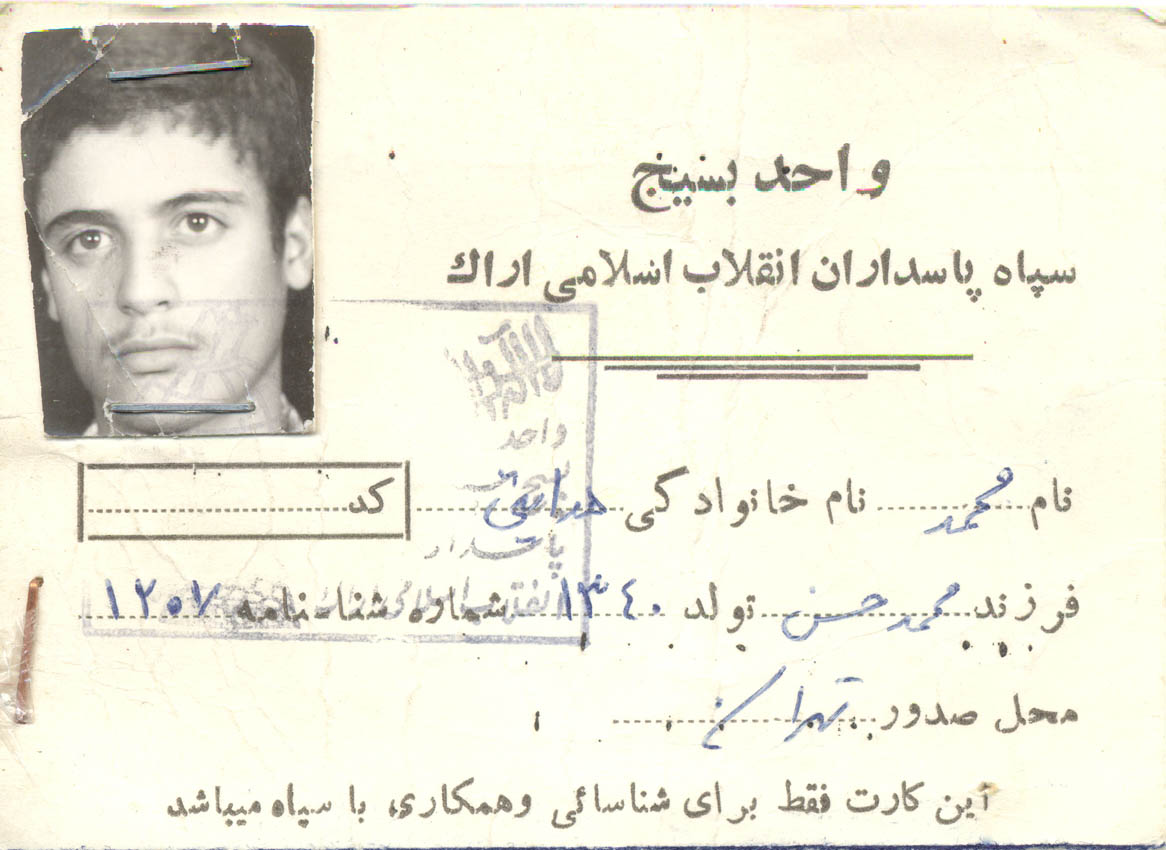 واحد بسیج
سپاه پاسداران انقلاب اسلامی اراک
واحد
نام محمد نام خانوادگی کد
پاسدار
فرزند محمد حسن تولد ۱۳۴۰ شماره شناسنامه ۱۲۰۷
انقلاب اسلامی
محل صدور تهران
این کارت فقط برای شناسائی وهمکاری با سپاه میباشد